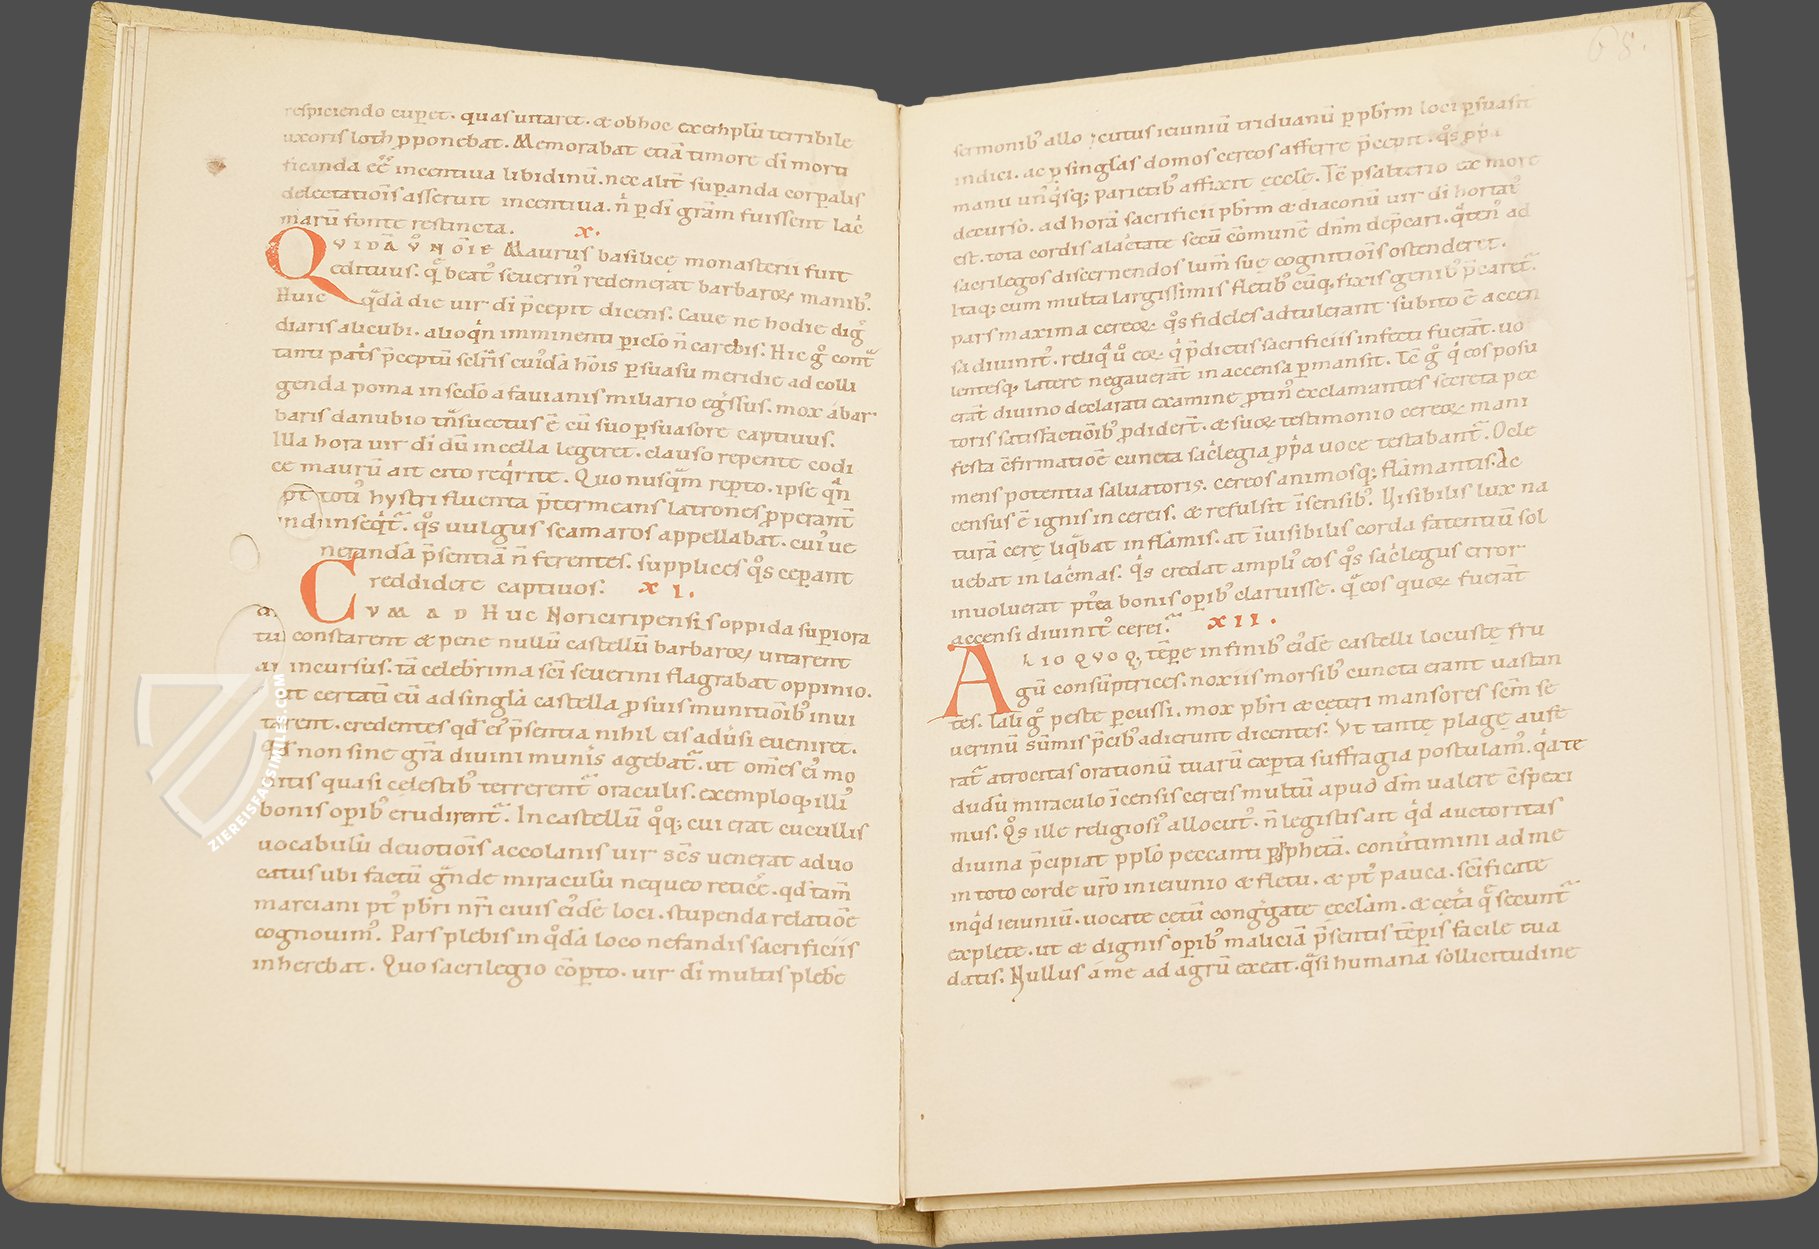 respiciendo cuperet. quas uitaret. & ob hoc exemplū terribile
uxoris loth p̄ponebat. Memorabat etiā timore dī morti
ficanda ēē incentiua libidinū. nec alit̄ sup̄anda corp̄alis
delectatiōis asseruit incentiua. n̄ p̄ dī grām fuissent lac̄
marū fonte restincta. X.
QVIDĀ V̊ NOIE Maurus basilice monasterii fuit
edituus. q̄ beat᾿ seuerin᾿ redemerat barbaroꝝ manib᾿.
Huic q̄dā die uir dī p̄cepit dicens. Caue ne hodie dig̊
diaris alicubi. alioq̇n imminenti p̄iclo n̄ carebis. Hic g̊ cont̄
tanti pat̄s p̄ceptū sclr̄is cui᾿dā hōis p̄suasu meridie ad colli
genda poma in sēdo a fauianis miliario eḡssus. mox a bar
baris danubio tn̄suectus ē cū suo p̄suasore captiuus.
Illa hora uir dī dū in cella legeret. clauso repente codi
ce maurū ait cito req̇rite. Quo nusq̄m rep̄to. ipse q̄n
pt totī hystri fluenta p̄termeans latrones p̄perant̄
induinseq̇t̄. q̊s uulgus scamaros appellabat. cui᾿ ue
nerandā p̄sentiā n̄ ferentes. supplices q̊s cep̄ant
reddidere captiuos. XI.
CVM AD HUC Noriciripensis oppida sup̄iora
constarent & pene nullū castellū barbaroꝝ uitarent
incursus. tā celeb̄rima scī seuerini flagrabat oppinio.
ut certatī eū ad singl̄a castella p̄ suis munitiōib᾿ inui
tarent. credentes qđ ei᾿ p̄sentia nihil eis adūsi eueniret.
qđ non sine grā diuini munīs agebat̄. ut om̄s ei᾿ mo
nitis quasi celestib᾿ terrerent̄ oraculis. exemploq; illi᾿
bonis op̄ib᾿ erudirent̄. In castellū q̊q; cui erat cucullis
uocabulū deuotiōis accolanis uir scs̄ uenerat aduo
catus ubi factū g̊nde miraculū nequeo retic̄e. qđ tam̄
marciani pt᾿ pbr̄i nr̄i ciuis ei᾿dē loci. stupenda relatiōe
cognouim᾿. Pars plebis in q̊dā loco nefandis sacrificiis
inherebat. Quo sacrilegio cōp̄to. uir dī multis plebē
68.
sermonib᾿ allocutus ieiuniū triduanū p̄ pbr̄m loci p̄suasit
indici. ac p̄ singl̄as domos cereos afferre p̄cepit. q̊s p̄p̄a
manu un᾿q̇sq; parietib᾿ affixit eccl̄e. Tc̄ psalterio ex more
decurso. ad horā sacrificii pbr̄m & diaconū uir dī hortat᾿
est. tota cordis alac̄tate secū cōmunē dn̄m dep̄cari. q̄ten᾿ ad
sacrilegos discernendos lum̄ sue cognitiōis ostenderet.
Itaq; cum multa largissimis fletib᾿ cū eis q, fixis genib᾿ p̄caret̄.
pars maxima cereoꝝ. q̊s fideles adtulerant subito ē accen
sa diuinit᾿. reliq̇ u̇ eoꝝ. q̇ p̄dictis sacrificiis infecti fuerāt. uo
lentesq; latere negauerāt inaccensa p̄mansit. Tc̄ g̊ q̇ eos posu
erāt diuino declarati examine p̄tin᾿ exclamantes secreta pec
toris satisfactiōib᾿ p̄didert̄. & suoꝝ testimonio cereoꝝ mani
festa cfirmatiōe cuncta sac̄legia p̄p̄a uoce testabant̄. O cle
mens potentia saluatoris. cereos animosq; flāmantis. Ac
census ē ignis in cereis. & refulsit ī sensib᾿. Visibilis lux na
turā cerę liq̄bat in flāmis. at īuisibilis corda fatentiū sol
uebat in lac̄mas. Q̇s credat ampli᾿ eos q̊s sac̄legus error
inuoluerat pt᾿ea bonis op̄ib᾿ claruisse. q̄ eos quoꝝ fuerāt
accensi diuinit᾿ cerei. XII.
ALIO QVOQ, tēp̄e in finib᾿ ei᾿dē castelli locustę fru
gū consūptrices. noxiis morsib᾿ cuncta erant uastan
tes. Tali g̊ peste p̄cussi. mox pbr̄i & ceteri mansores scm̄ se
uerinū sūmis p̄cib᾿ adierunt dicentes. Vt tantę plagę aufe
rat̄ atrocitas orationū tuarū exp̄ta suffragia postulam᾿. q̇a te
dudū miraculo īcensis cereis multū apud dm̄ ualere cspexi
mus. Q̊s ille religiosi᾿ allocut᾿. n̄ legistis ait q̇d auctoritas
diuina p̄cipiat pplo peccanti p̄ p̄phetā. conūtimini ad me
in toto corde ur̄o in ieiunio & fletu. & pt᾿ pauca. scīficate
inq̇d ieiuniū. uocate cetū congḡate ecclam. & cetā q̄ secunt̄
explete. ut & dignis op̄ib᾿ maliciā p̄sentis tēp̄is facile eua
datis. Nullus a me ad agrū exeat. q̄si humana sollicitudine
ZIEREISFACSIMILES.COM